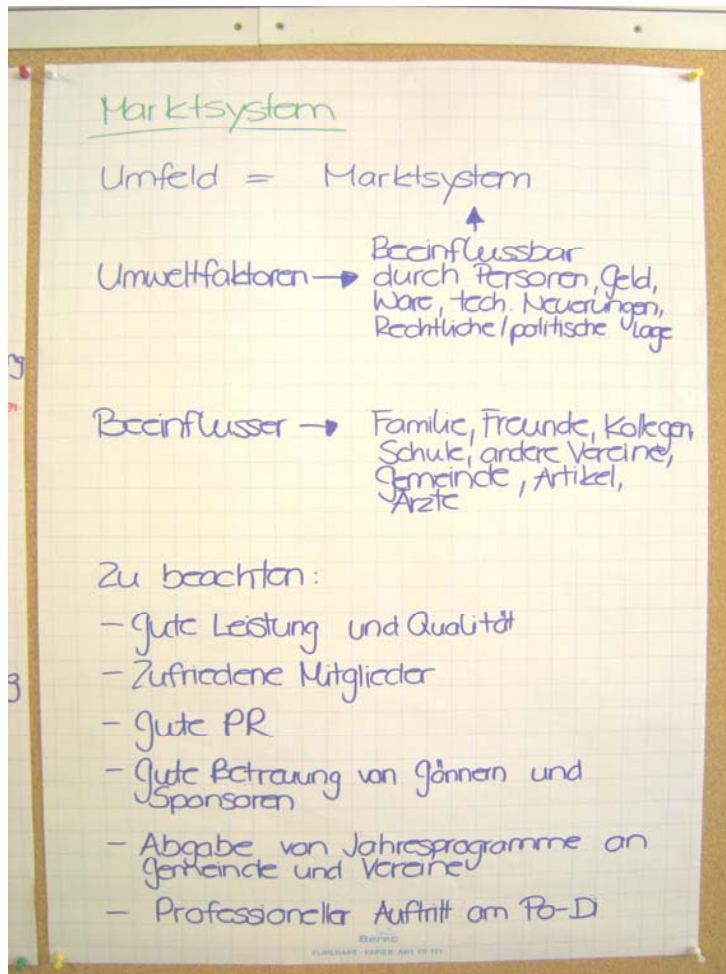 Marktsystem
Umfeld = Marktsystem
Beeinflussbar
Umweltfaktoren → durch Personen, Geld,
Ware, tech. Neuerungen,
Rechtliche/politische Lage
Beeinflusser → Familie, Freunde, Kollegen
Schule, andere Vereine,
Gemeinde, Artikel,
Ärzte
Zu beachten:
- Gute Leistung und Qualität
- Zufriedene Mitglieder
- Gute PR
- Gute Betreuung von Gönnern und
Sponsoren
- Abgabe von Jahresprogramme an
Gemeinde und Vereine
- Professioneller Auftritt am Po-Di
Berec
FLIPCHART - PAPIER ART. FP 101